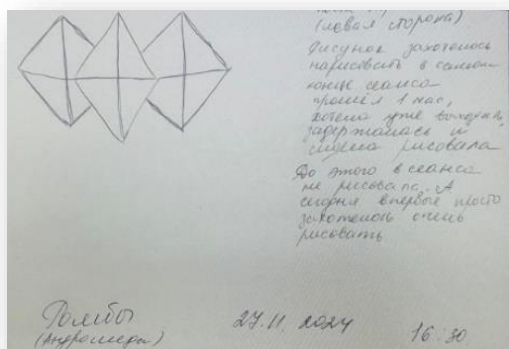 (левая сторона)
Рисунок захотелось
нарисовать в самом
конце сеанса
прошёл 1 час,
хотела уже выходить,
задержалась и
сидела рисовала
До этого в сеанса
не рисовала. А
сегодня впервые просто
захотелось очень
рисовать
Ромбы
(Андромеда)
27.11.2024
16:30